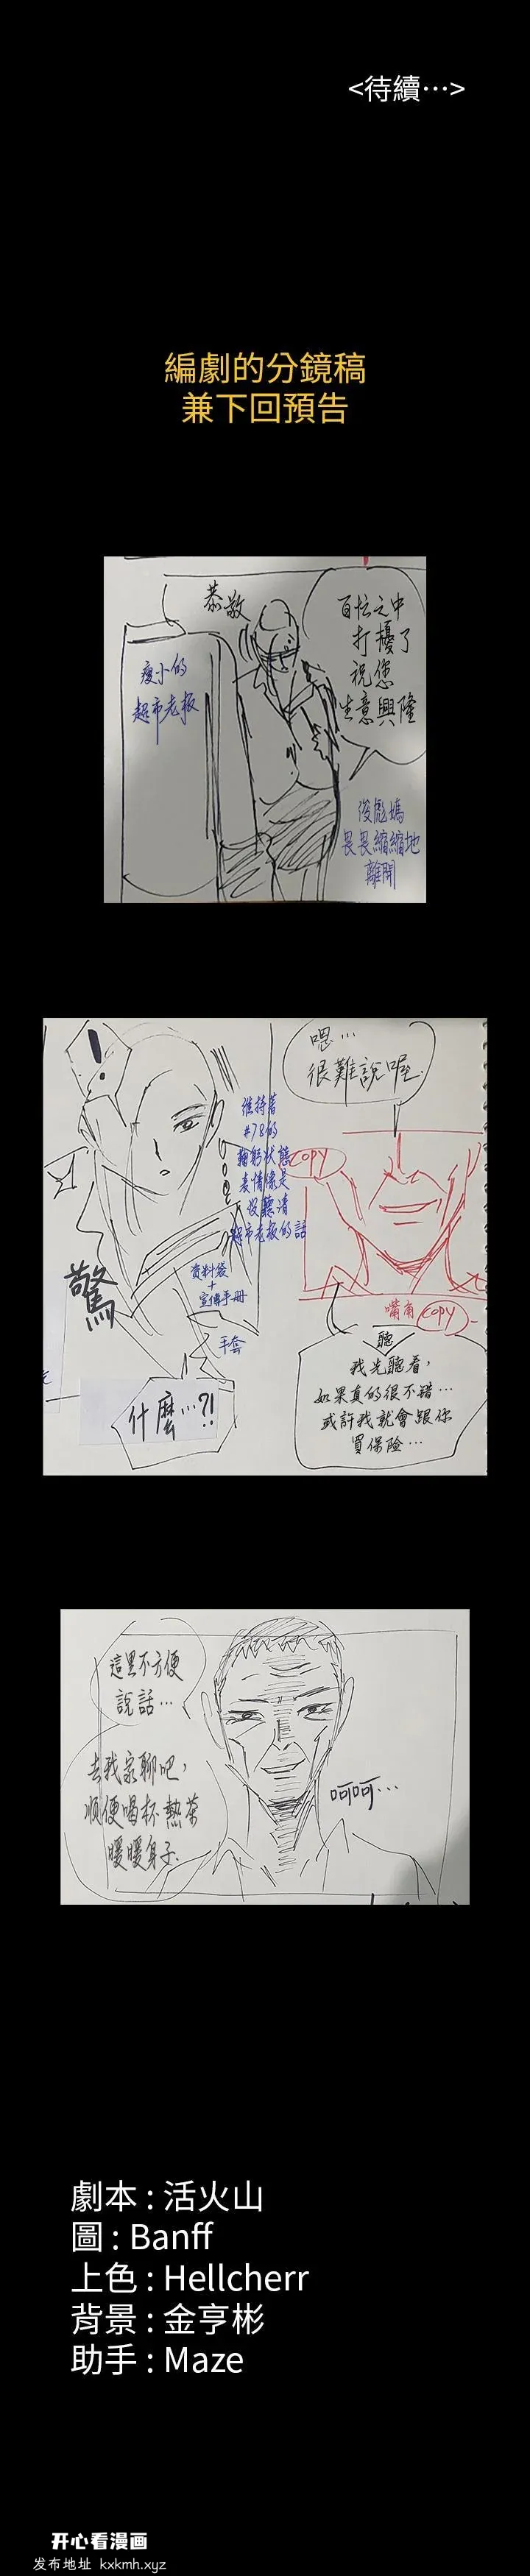 <待續…>
編劇的分鏡稿
兼下回預告
恭敬
百忙之中
打擾了
祝您
生意興隆
瘦小的
超市老板
俊彪媽
畏畏縮縮地
離開
嗯…
很難說喔.
!
維持著
#78的
鞠躬狀態
表情像是
沒聽清
超市老板的話
COPY
驚
資料袋
+
宣傳手冊
手套
嘴角 COPY
什麼…?!
聽
我先聽看,
如果真的很不錯…
或許我就會跟你
買保險…
這里不方便
說話…
去我家聊吧,
順便喝杯熱茶
暖暖身子.
呵呵…
劇本 : 活火山
圖 : Banff
上色 : Hellcherr
背景 : 金亨彬
助手 : Maze
开心看漫画
发布地址 kxkmh.xyz